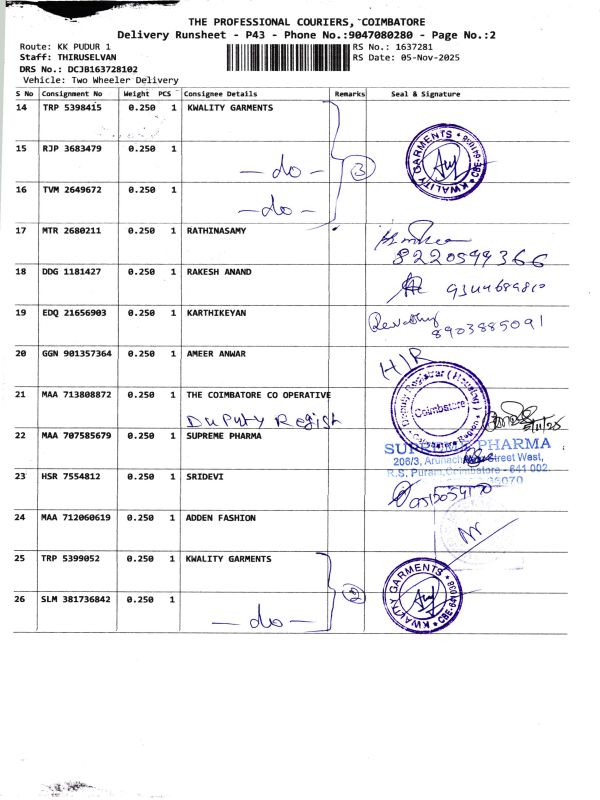 THE PROFESSIONAL COURIERS, COIMBATORE
Delivery Runsheet - P43 - Phone No.:9047080280 - Page No.:2
Route: KK PUDUR 1 RS No.: 1637281
Staff: THIRUSELVAN RS Date: 05-Nov-2025
DRS No.: DCJB163728102
Vehicle: Two Wheeler Delivery
S No Consignment No Weight PCS Consignee Details Remarks Seal & Signature
14 TRP 5398415 0.250 1 KWALITY GARMENTS
KWALITY GARMENTS
15 RJP 3683479 0.250 1
— do — ③
16 TVM 2649672 0.250 1
— do —
17 MTR 2680211 0.250 1 RATHINASAMY
8220599366
18 DDG 1181427 0.250 1 RAKESH ANAND
9344689810
19 EDQ 21656903 0.250 1 KARTHIKEYAN
Revathy 8903885091
20 GGN 901357364 0.250 1 AMEER ANWAR
H/R
21 MAA 713808872 0.250 1 THE COIMBATORE CO OPERATIVE
Deputy Registrar (Housing) Coimbatore Region
DUPUTY Regist
22 MAA 707585679 0.250 1 SUPREME PHARMA
SUPREME PHARMA
206/3, Street West,
R.S. Puram, Coimbatore - 641 002.
23 HSR 7554812 0.250 1 SRIDEVI
24 MAA 712060619 0.250 1 ADDEN FASHION
25 TRP 5399052 0.250 1 KWALITY GARMENTS
KWALITY GARMENTS
②
26 SLM 381736842 0.250 1
— do —